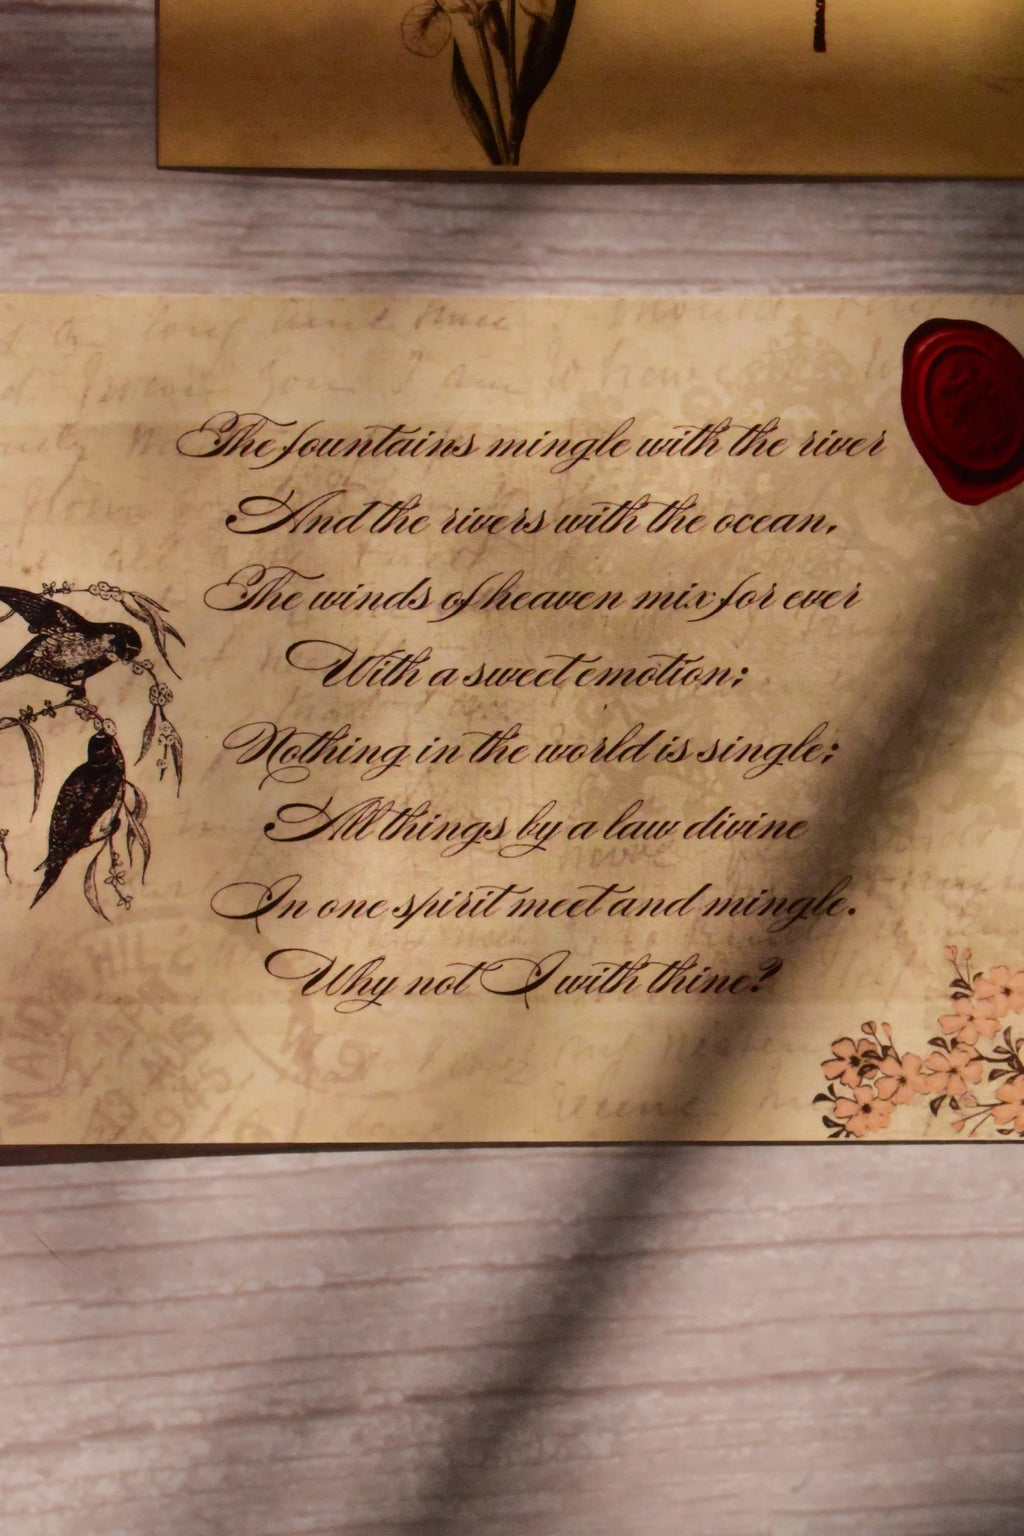 The fountains mingle with the river
And the rivers with the ocean,
The winds of heaven mix for ever
With a sweet emotion;
Nothing in the world is single;
All things by a law divine
In one spirit meet and mingle.
Why not I with thine?